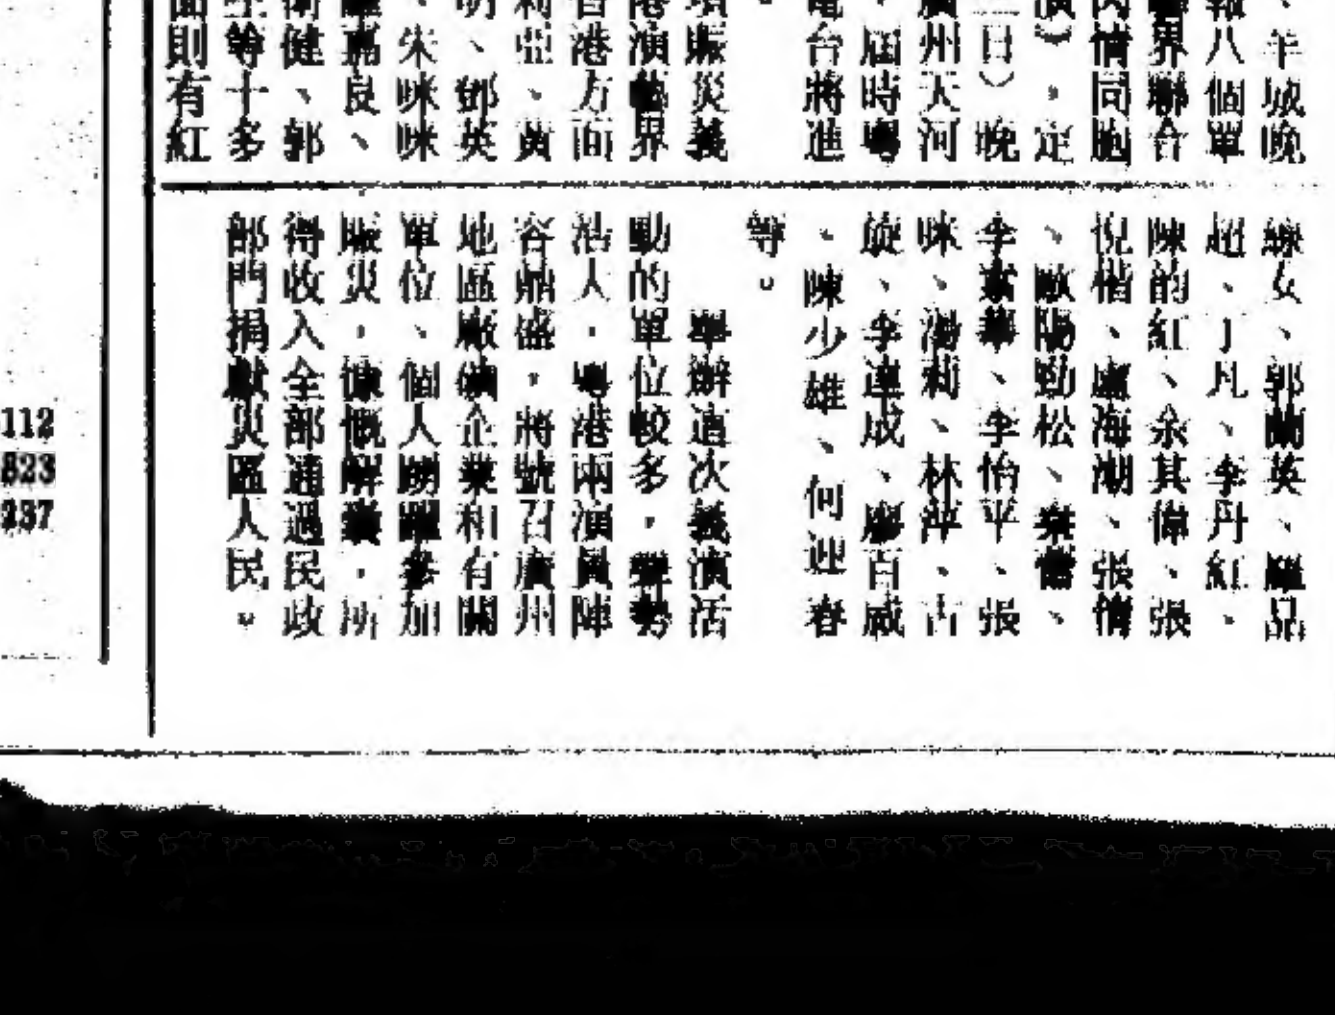 、羊城晚
報八個單
界聯合
肉情同胞
演），定
三日）晚
廣州天河
，屆時粵
電台將進
。
項賑災義
港演藝界
香港方面
利亞、黃
明、鄧英
、朱咪咪
嘉良、
衛健、郭
生等十多
面則有紅
線女、郭蘭英、羅品
超、丁凡、李丹紅、
陳韵紅、余其偉、張
悅楷、盧海潮、張倩
、歐陽勁松、
李素華、李怡平、張
咪、湯莉、林萍、古
旋、李達成、廖百威
、陳少雄、何迎春
等。
舉辦這次義演活
動的單位較多，聲勢
浩人，粵港兩演員陣
容鼎盛，將號召廣州
地區廠礦企業和有關
單位、個人踴躍參加
賑災，慷慨解囊，所
得收入全部通過民政
部門捐獻災區人民。
112
823
237